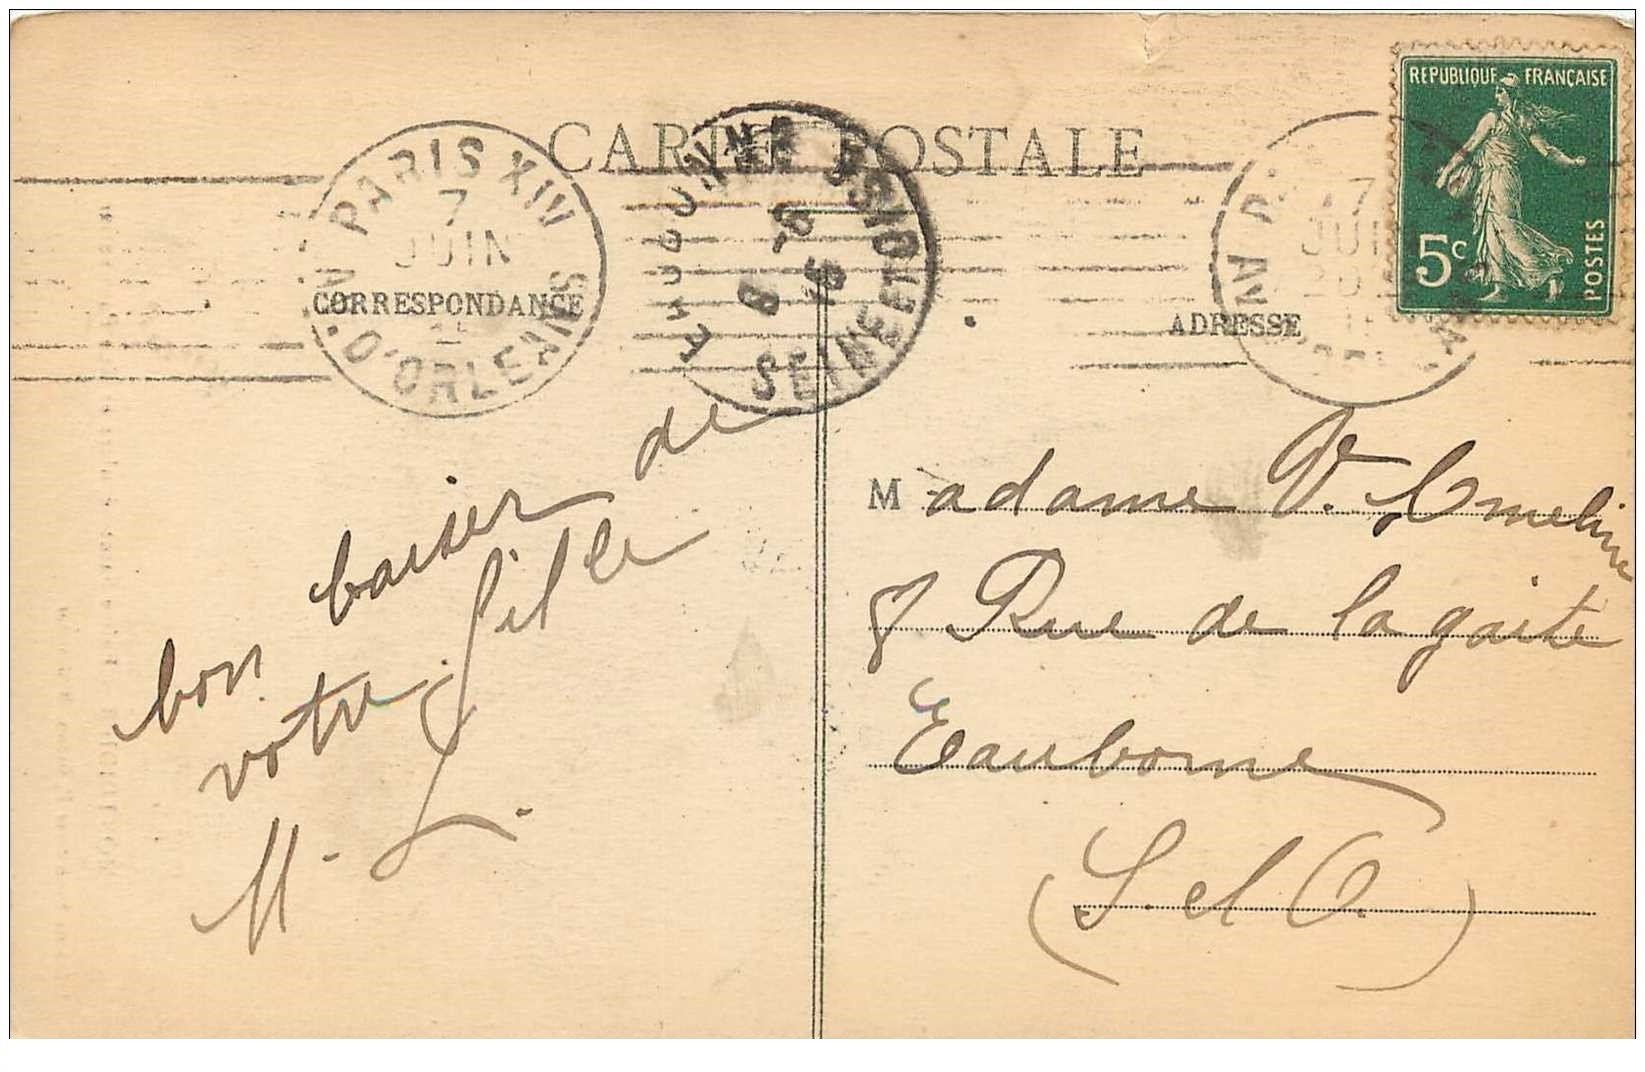 CARTE POSTALE
REPUBLIQUE FRANÇAISE
5c
POSTES
PARIS XIV
7
JUIN
AV. D'ORLEANS
CORRESPONDANCE
SEINE ET OISE
8 - 6
15
ADRESSE
bon baiser de
votre fille
M. L.
Madame Ve. Emeline
8 Rue de la gaite
Eaubonne
(S. et O.)